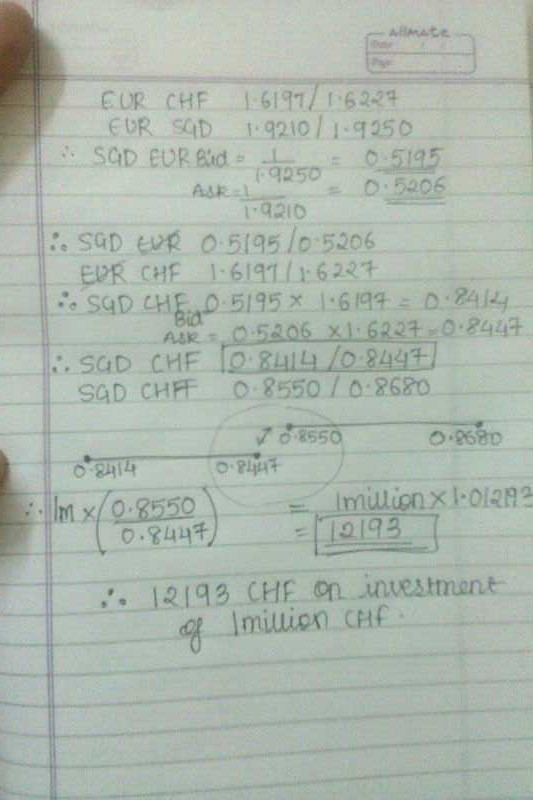 AllMate
Date: / /
Page:
EUR CHF 1.6197/1.6227
EUR SGD 1.9210/1.9250
∴ SGD EUR Bid = 1/1.9250 = 0.5195
Ask = 1/1.9210 = 0.5206
∴ SGD EUR 0.5195/0.5206
EUR CHF 1.6197/1.6227
∴ SGD CHF Bid 0.5195 × 1.6197 = 0.8414
Ask = 0.5206 × 1.6227 = 0.8447
∴ SGD CHF 0.8414/0.8447
SGD CHF 0.8550/0.8680
0.8550 0.8680
0.8414 0.8447
∴ 1m × (0.8550/0.8447) = 1million × 1.012193
= 12193
∴ 12193 CHF on investment
of 1million CHF.